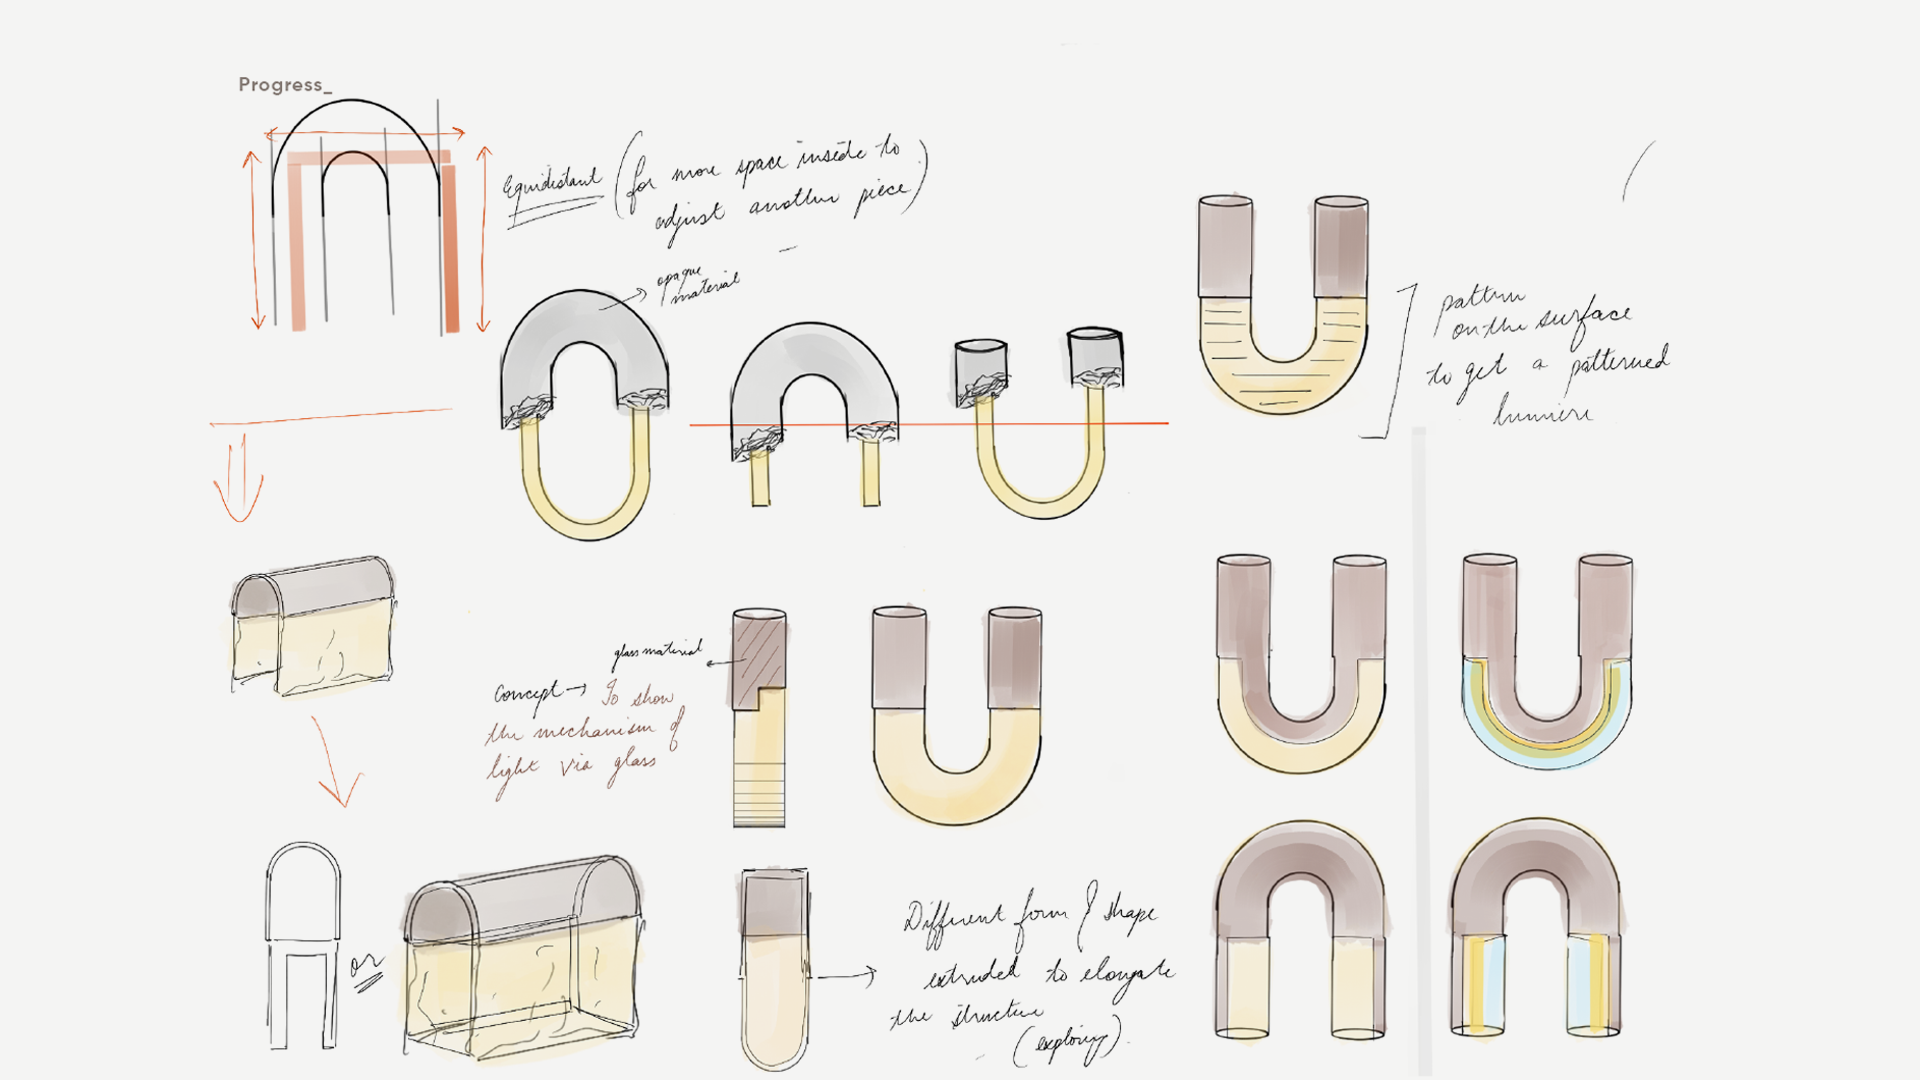 Progress_
Equidistant (for more space inside to
adjust another piece)
opaque
material
pattern
on the surface
to get a patterned
lumiere
glass material
Concept → To show
the mechanism of
light via glass
or
Different form & shape
extruded to elongate
the structure
(exploring).